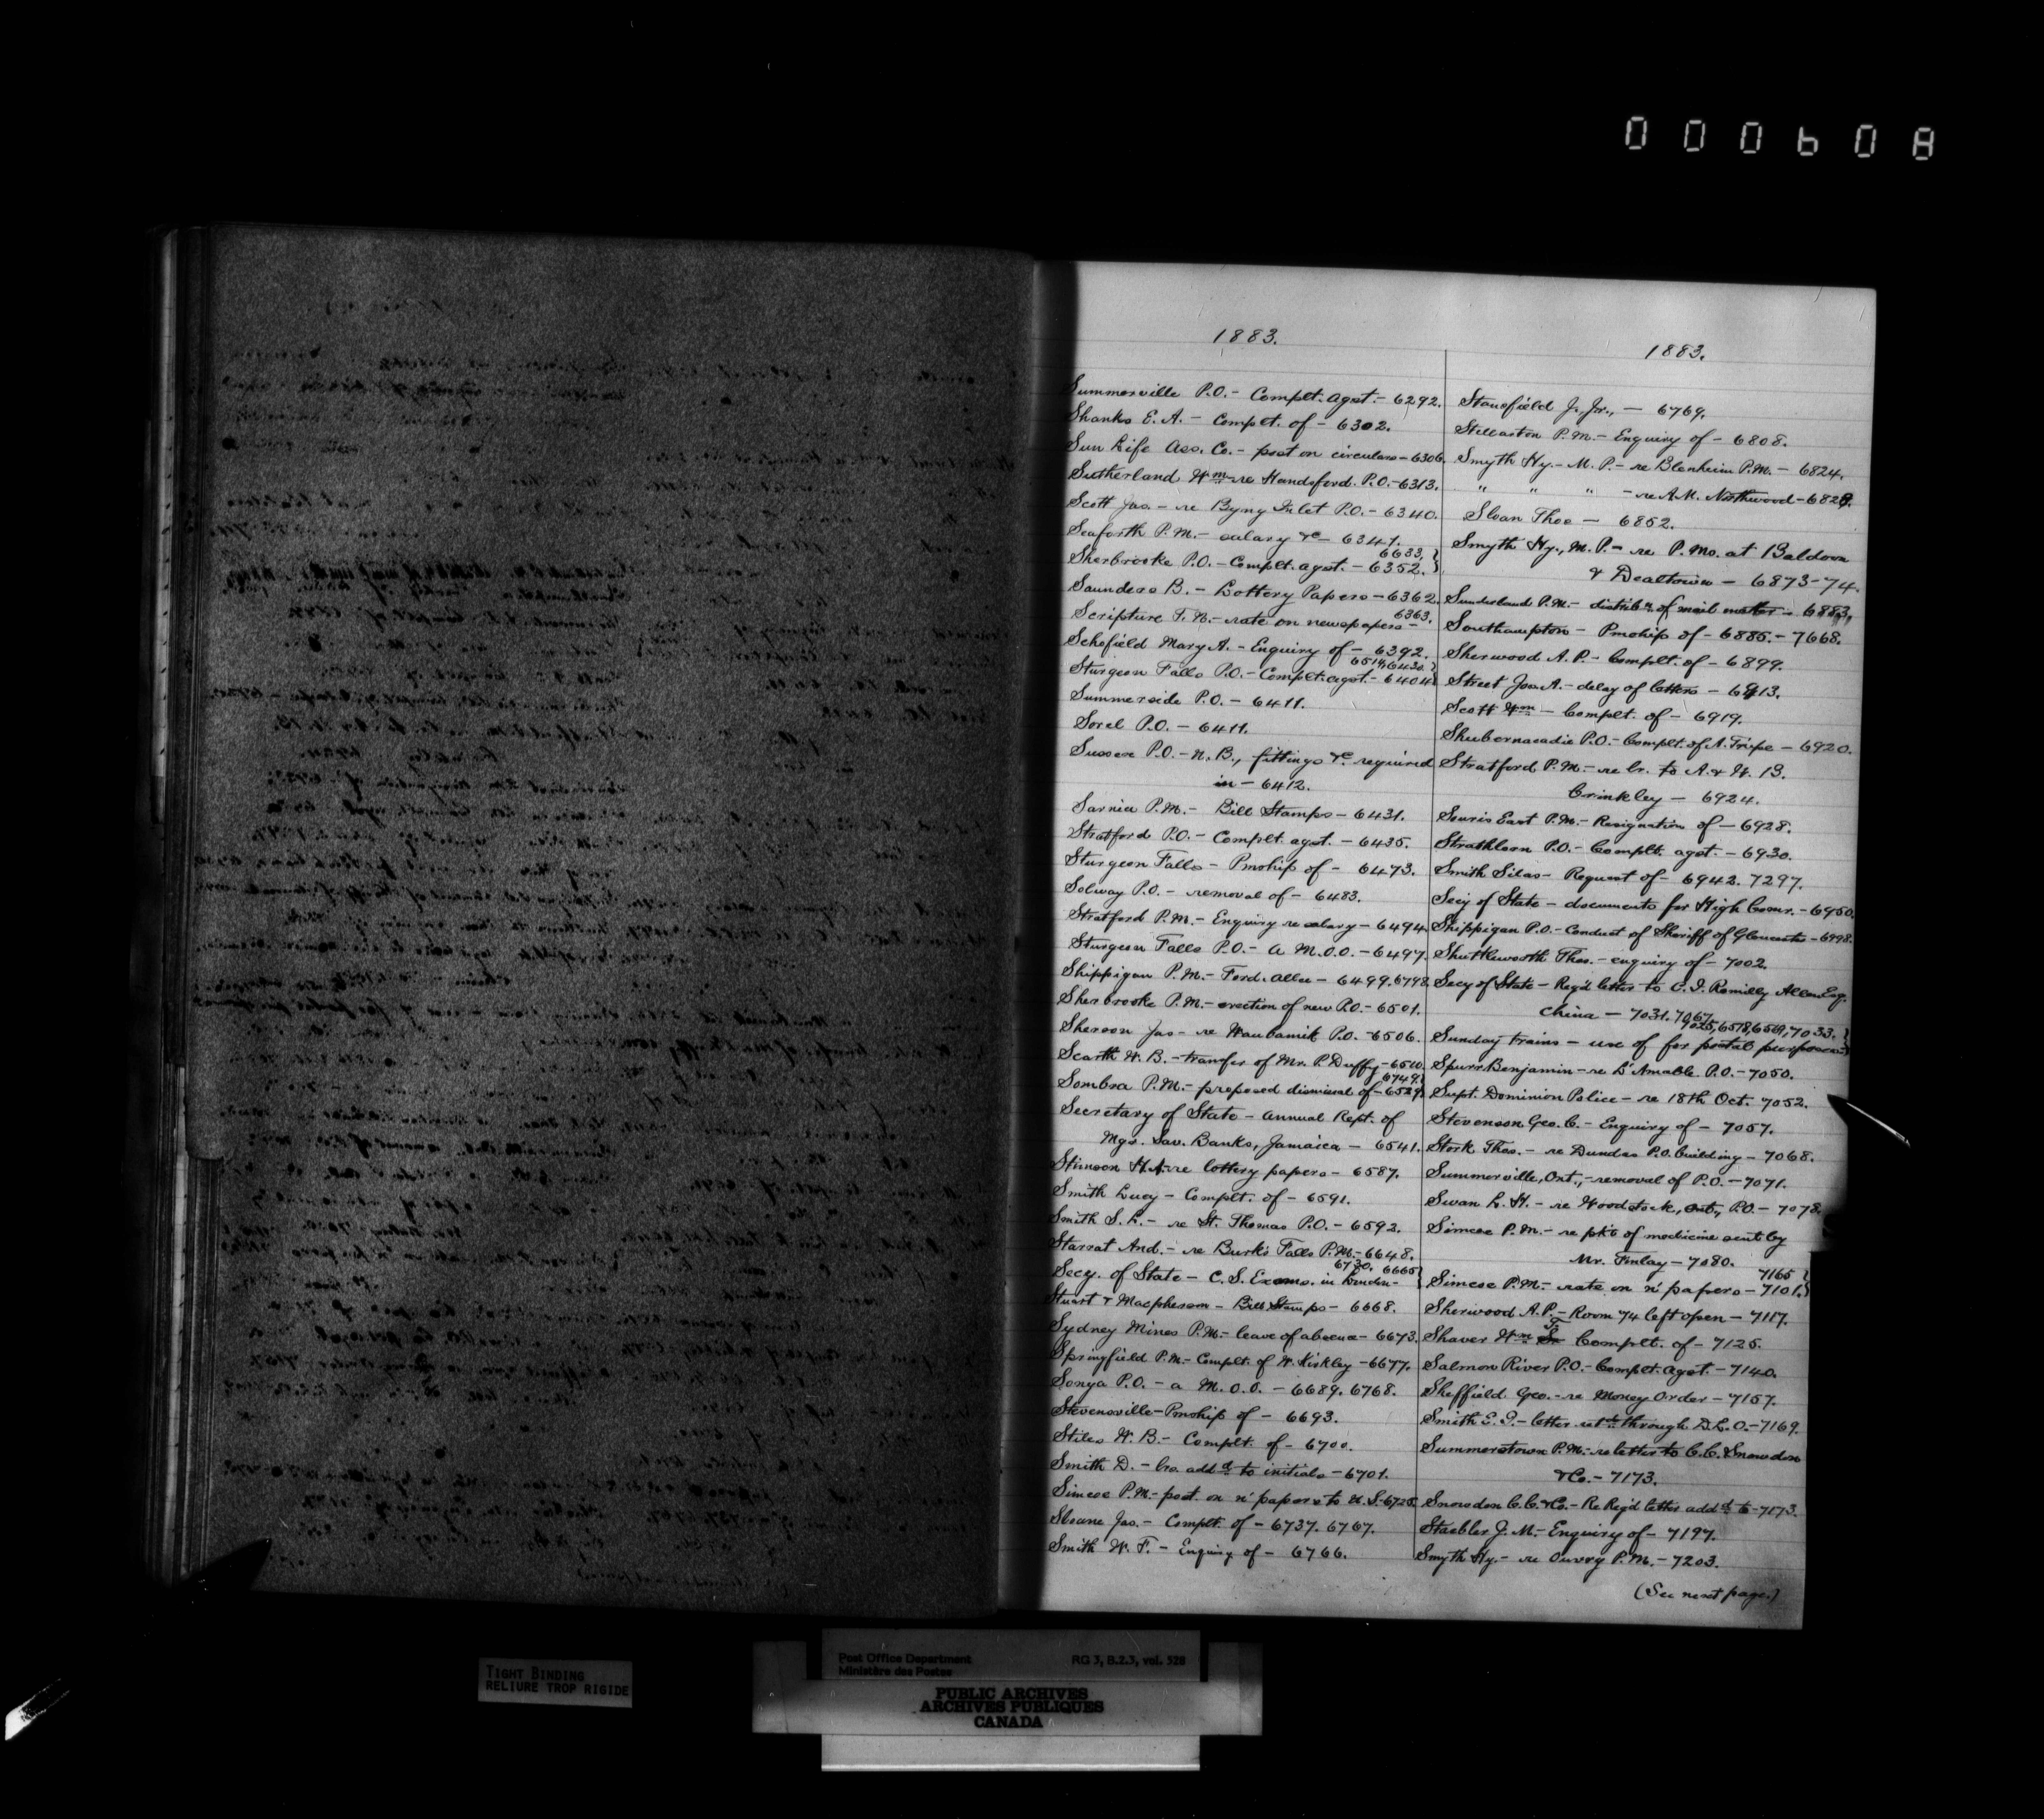 000608
1883.
Summerville P.O. - Complt. agst. - 6292.
Shanks E. A. - Complt. of - 6302.
Sun Life Ass. Co. - post on circulars - 6306.
Sutherland Wm re Handsford P.O. - 6313.
Scott Jas. - re Byng Inlet P.O. - 6340.
Seaforth P.M. - salary &c - 6347.
6633,
Sherbrooke P.O. - Complt. agst. - 6352.
Saunders B. - Lottery Papers - 6362.
6363.
Scripture T. N. - rate on newspapers -
Schofield Mary A. - Enquiry of - 6392.
6514, 6430.
Sturgeon Falls P.O. - Complt. agst. - 6404
Summerside P.O. - 6411.
Sorel P.O. - 6411.
Sussex P.O. - N. B., fittings &c. required
in - 6412.
Sarnia P.M. - Bill Stamps - 6431.
Stratford P.O. - Complt. agst. - 6435.
Sturgeon Falls - Pmship of - 6473.
Solway P.O. - removal of - 6483.
Stratford P.M. - Enquiry re salary - 6494
Sturgeon Falls P.O. - a M.O.O. - 6497.
Shippigan P.M. - Ford. allce - 6499. 6798.
Sherbrooke P.M. - erection of new P.O. - 6501.
Sheroon Jas - re Waubamik P.O. - 6506.
Scarth W. B. - transfer of Mr. P. Duffy - 6510.
6749.
Sombra P.M. - proposed dismissal of - 6529.
Secretary of State - Annual Rept. of
Mgs. Sav. Banks, Jamaica - 6541.
Stimson H. A. re lottery papers - 6587.
Smith Lucy - Complt. of - 6591.
Smith S. L. - re St. Thomas P.O. - 6592.
Starrat And. - re Burk's Falls P.M. - 6648.
6730. 6665
Secy. of State - C. S. Exams. in London -
Stuart & Macpherson - Bill Stamps - 6668.
Sydney Mines P.M. - leave of absence - 6673.
Springfield P.M. - Complt. of W. Kirkley - 6677.
Sonya P.O. - a M.O.O. - 6689. 6768.
Stevensville - Pmship of - 6693.
Stiles W. B. - Complt. of - 6700.
Smith D. - lrs. addd to initials - 6701.
Simcoe P.M. - post. on n' papers to U.S. - 6725.
Sloane Jas. - Complt. of - 6737. 6767.
Smith W. F. - Enquiry of - 6766.
1883.
Stansfield J. Jr., - 6769.
Stillarton P.M. - Enquiry of - 6808.
Smyth Hy. - M.P. - re Blenheim P.M. - 6824.
" " " - re A.M. Northwood - 6828.
Sloan Thos - 6852.
Smyth Hy., M.P. - re P.Ms. at Baldoon
& Dealtown - 6873-74.
Sunderland P.M. - distribn of mail matter - 6883,
Southampton - Pmship of - 6885. - 7668.
Sherwood A. P. - Complt. of - 6899.
Street Jos. A. - delay of letters - 6913.
Scott Wm - Complt. of - 6919.
Shubernacadie P.O. - Complt. of A. Tripe - 6920.
Stratford P.M. - re lr. to A. & W. B.
Brinkley - 6924.
Souris East P.M. - Resignation of - 6928.
Strathlorn P.O. - Complt. agst. - 6930.
Smith Silas - Request of - 6942. 7297.
Secy of State - documents for High Comr. - 6950.
Shippigan P.O. - Conduct of Sheriff of Gloucester - 6998.
Shuttleworth Thos. - enquiry of - 7002.
Secy of State - Reg'd letter to C. I. Romilly Allen Esq.
China - 7031. 7067.
7025, 6578, 6569, 7033.
Sunday trains - use of for postal purposes
Spurr Benjamin - re L'Amable P.O. - 7050.
Supt. Dominion Police - re 18th Oct. 7052.
Stevenson Geo. C. - Enquiry of - 7057.
Stork Thos. - re Dundas P.O. building - 7068.
Summerville, Ont., - removal of P.O. - 7071.
Swan L. H. - re Woodstock, Ont., P.O. - 7078.
Simcoe P.M. - re pkts of medicine sent by
Mr. Finlay - 7080.
7165
Simcoe P.M. - rate on n' papers - 7101.
Sherwood A. P. - Room 74 left open - 7117.
Shaver Wm Complt. of - 7125.
Salmon River P.O. - Complt. agst. - 7140.
Sheffield Geo. - re Money Order - 7157.
Smith E. P. - letter retd through D.L.O. - 7169.
Summerstown P.M. - re letter to C.C. Snowdon
& Co. - 7173.
Snowdon C.C. & Co. - Re Reg'd letter addd to - 7173.
Staebler J. M. - Enquiry of - 7197.
Smyth Hy. - re Ouvry P.M. - 7203.
(See next page.)
TIGHT BINDING
RELIURE TROP RIGIDE
Post Office Department
Ministère des Postes
RG 3, B.2.3, vol. 528
PUBLIC ARCHIVES
ARCHIVES PUBLIQUES
CANADA